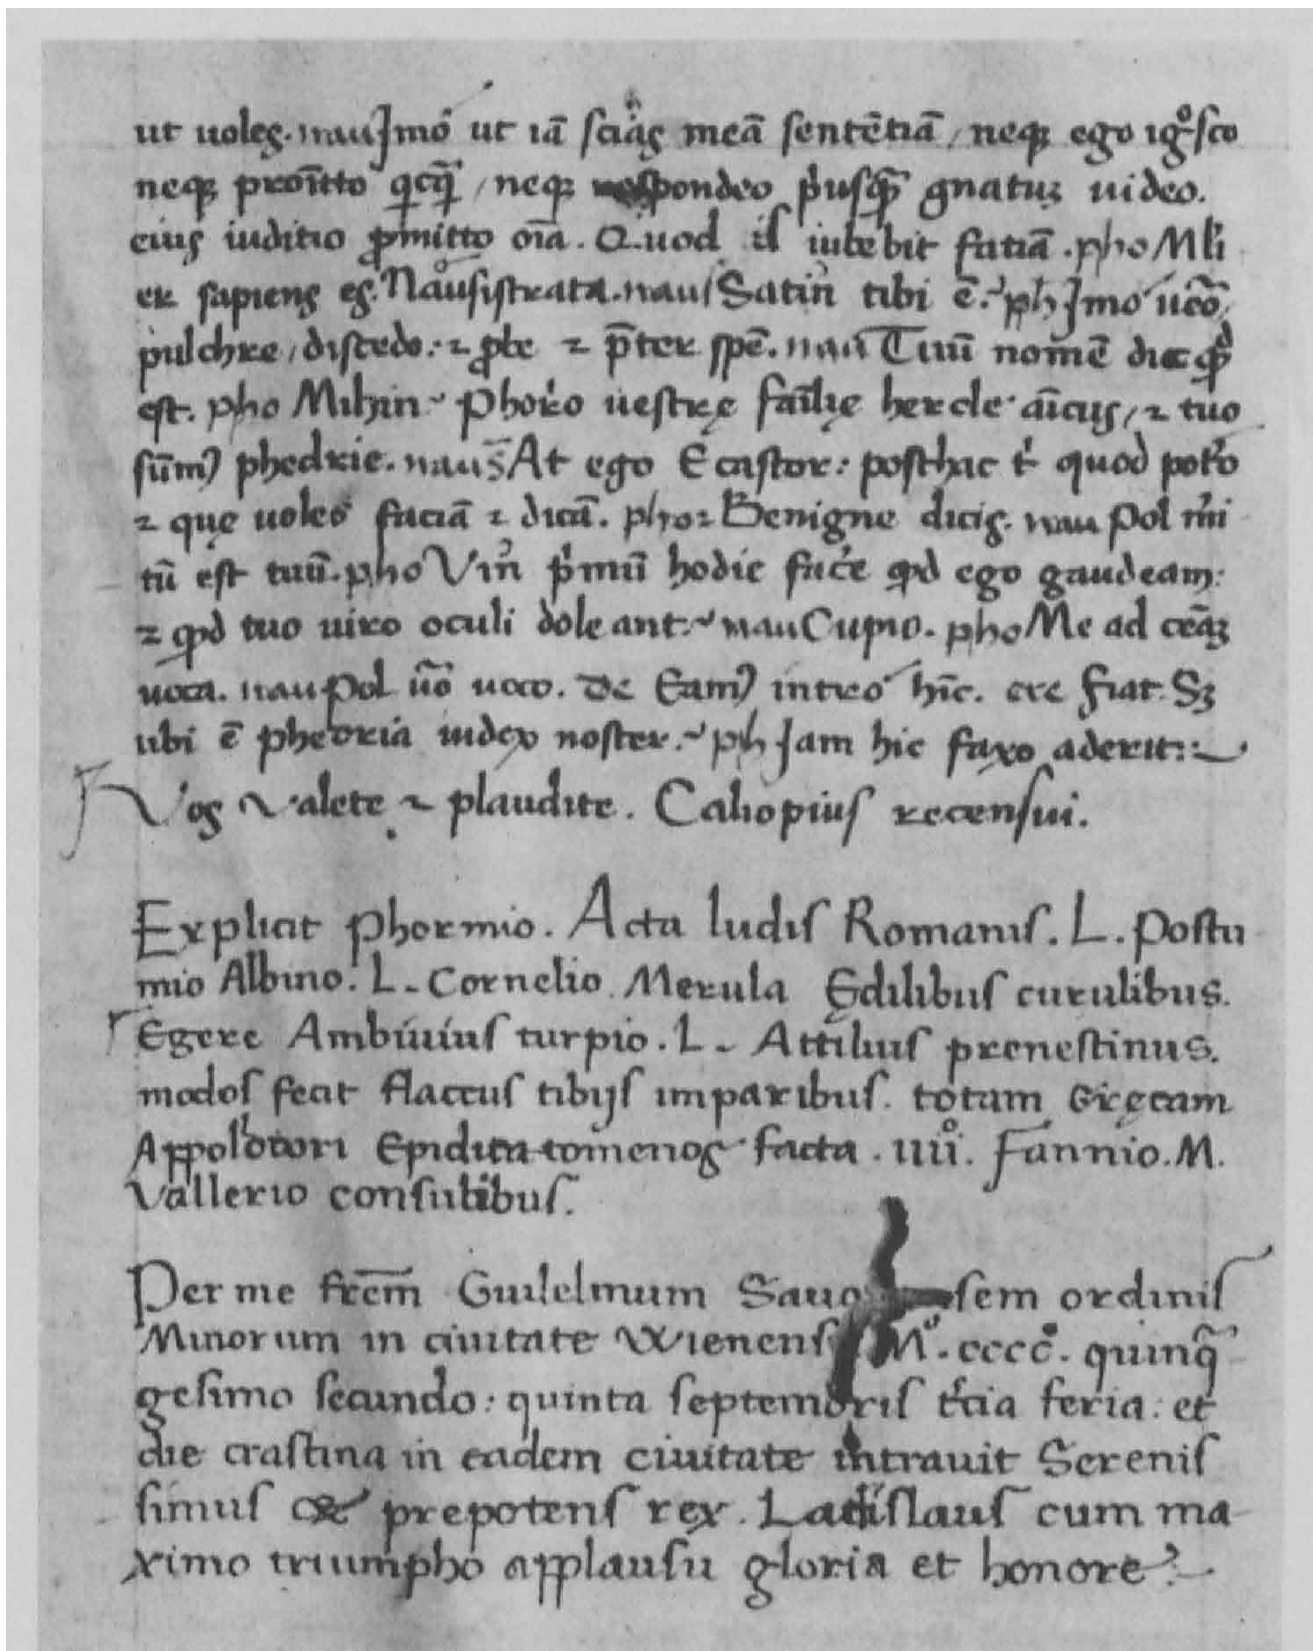 ut uoles. nau Imo ut iā scias meā sentētiā / neqꝫ ego igͦsco
neqꝫ promitto qicq̄ / neqꝫ respondeo pͥusq̄ gnatuꝫ uideo.
eius iuditio ꝓmitto oīa. Quod is iubebit fatiā. pho Mͦli
er sapiens es. Nausistrata. nau Satin tibi ē. ph Imo ūo
pulchre / discedo: ⁊ ꝓbe ⁊ p̄ter spē. nau Tuū nomē dic qd
est. pho Mihin Phorͥo uestrę familię hercle amicus / ⁊ tuo
sūmꝰ phedrie. nau At ego Ecastor: posthac tͥ quod poterͦo
⁊ quę uoles faciā ⁊ dicā. pho Benigne dicis. nau Pol mͥi
tū est tuū. pho Vin pͥmū hodie facͤe qd ego gaudeam:
⁊ qd tuo uiro oculi doleant. nau Cupio. pho Me ad cenāꝫ
uoca. nau Pol ūo uoco. de Eamꝰ intro hīc. cre Fiat. Sꝫ
ubi ē phedria iudex noster. ph Jam hic faxo aderit:
Vos Valete ⁊ plaudite. Caliopius recensui.
Explicit Phormio. Acta ludis Romanis. L. Postu
mio Albino. L. Cornelio Merula Ędilibus curulibus.
Egere Ambiuius turpio. L. Attilius prenestinus.
modos fecit flaccus tibijs imparibus. totam Gręcam
Appolͦdori Epidicatomenos facta. iiiiͦ. Fannio. M.
Vallerio consulibus.
Per me frēm Guilelmum Sauo sem ordinis
Minorum in ciuitate Wienensi Mͦ. ccccͦ. quinq̄
gesimo secundo: quinta septembris tͥcia feria: et
die crastina in eadem ciuitate intrauit Serenis
simus & prepotens rex. Ladislaus cum ma
ximo triumpho applausu gloria et honore